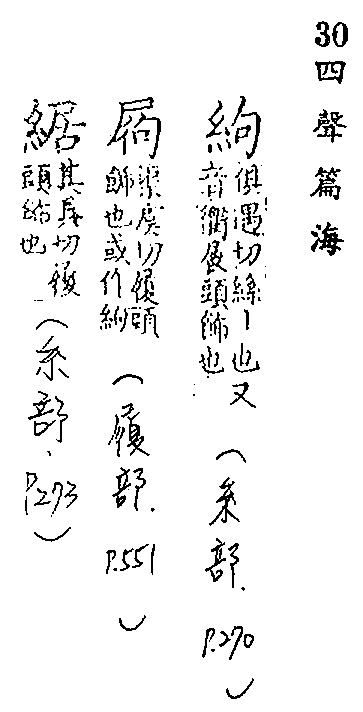 30四聲篇海
絇 俱遇切絲丨也又
音衢履頭飾也
(糸部.P.270)
𡲬 渠虞切履頭
飾也或作絇
(履部.P.551)
䋧 其俱切履
頭飾也
(糸部、P.273)